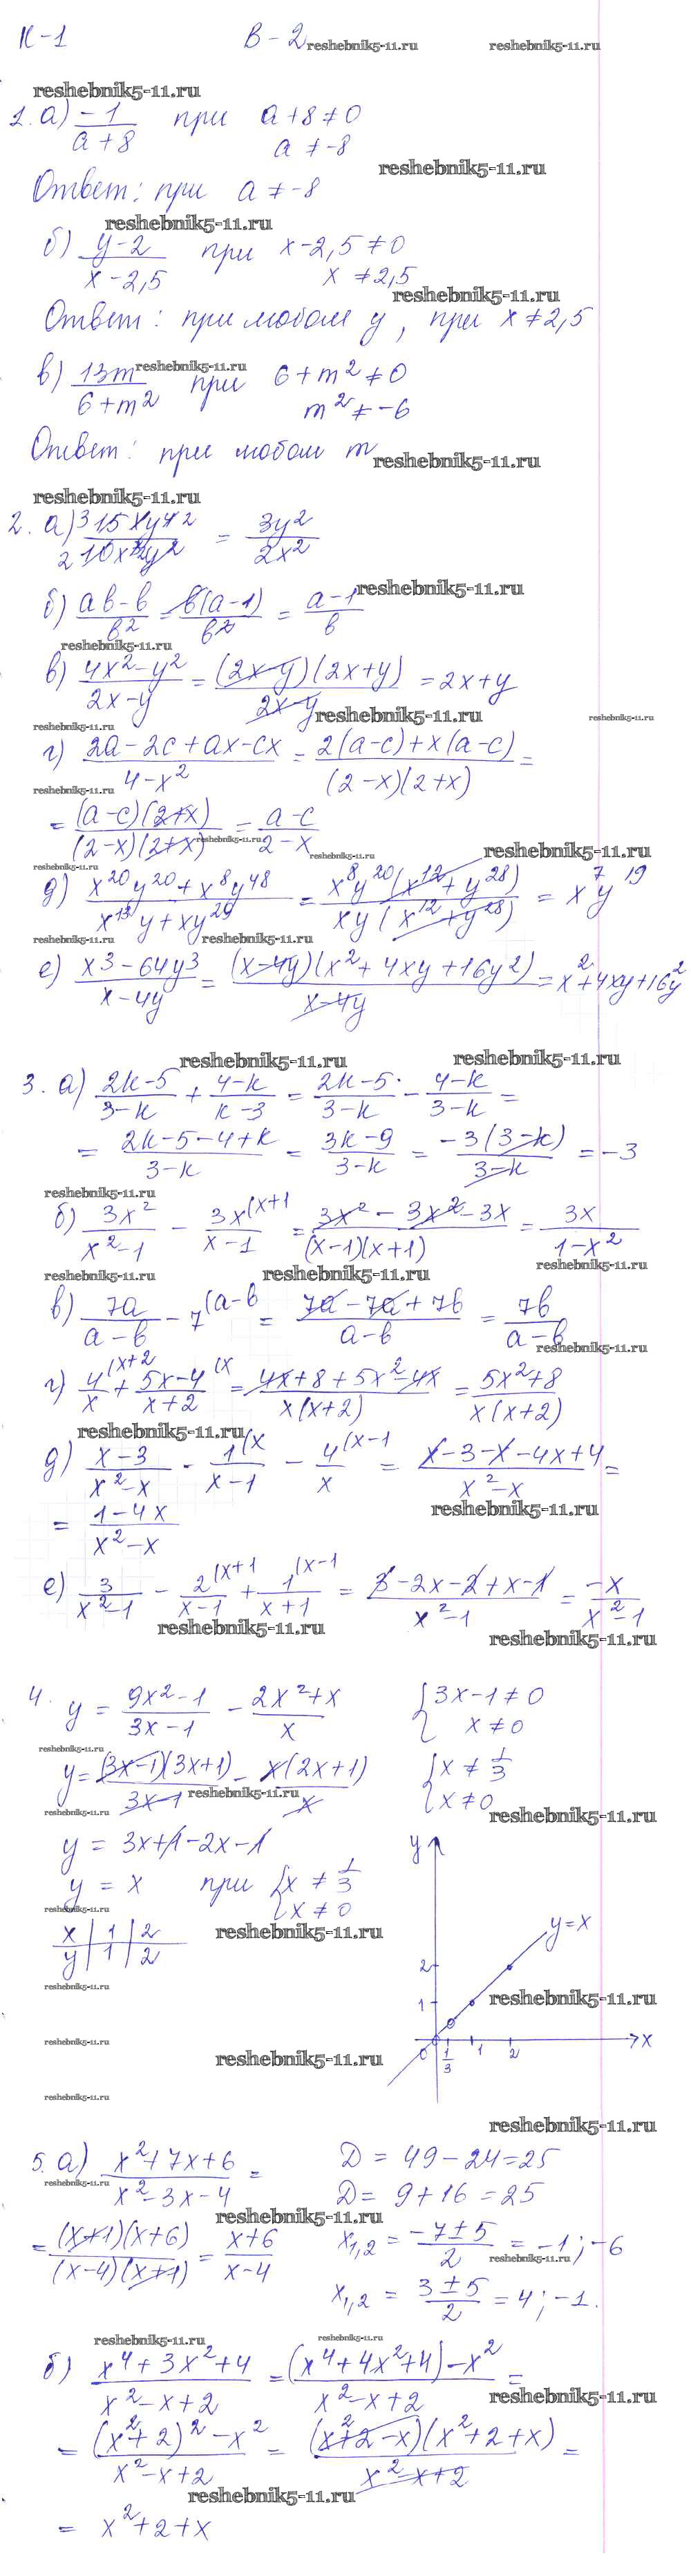 К-1 В-2 reshebnik5-11.ru reshebnik5-11.ru
reshebnik5-11.ru
1. а) -1/(a+8) при a+8≠0
a≠-8
reshebnik5-11.ru
Ответ: при a≠-8
reshebnik5-11.ru
б) (y-2)/(x-2,5) при x-2,5≠0
x≠2,5
reshebnik5-11.ru
Ответ: при любом y, при x≠2,5
в) 13m/(6+m²) reshebnik5-11.ru при 6+m²≠0
m²≠-6
Ответ: при любом m
reshebnik5-11.ru
reshebnik5-11.ru
2. а) = 3y²/2x²
reshebnik5-11.ru
б) (ab-b)/b² = b(a-1)/b² = (a-1)/b
reshebnik5-11.ru
в) (4x²-y²)/(2x-y) = (2x-y)(2x+y)/(2x-y) = 2x+y
reshebnik5-11.ru
reshebnik5-11.ru
reshebnik5-11.ru
г) (2a-2c+ax-cx)/(4-x²) = (2(a-c)+x(a-c))/((2-x)(2+x)) =
reshebnik5-11.ru
= (a-c)(2+x)/((2-x)(2+x)) = (a-c)/(2-x)
reshebnik5-11.ru
reshebnik5-11.ru
reshebnik5-11.ru
reshebnik5-11.ru
д) (x²⁰y²⁰+x⁸y⁴⁸)/(x¹³y+xy²⁹) = x⁸y²⁰(x¹²+y²⁸)/(xy(x¹²+y²⁸)) = x⁷y¹⁹
reshebnik5-11.ru
reshebnik5-11.ru
е) (x³-64y³)/(x-4y) = (x-4y)(x²+4xy+16y²)/(x-4y) = x²+4xy+16y²
reshebnik5-11.ru
reshebnik5-11.ru
3. а) (2k-5)/(3-k) + (4-k)/(k-3) = (2k-5)/(3-k) - (4-k)/(3-k) =
= (2k-5-4+k)/(3-k) = (3k-9)/(3-k) = -3(3-k)/(3-k) = -3
reshebnik5-11.ru
б) 3x²/(x²-1) - 3x/(x-1) (x+1 = (3x²-3x²-3x)/((x-1)(x+1)) = 3x/(1-x²)
reshebnik5-11.ru
reshebnik5-11.ru
reshebnik5-11.ru
в) 7a/(a-b) - 7 (a-b = (7a-7a+7b)/(a-b) = 7b/(a-b)
reshebnik5-11.ru
г) 4/x (x+2 + (5x-4)/(x+2) (x = (4x+8+5x²-4x)/(x(x+2)) = (5x²+8)/(x(x+2))
reshebnik5-11.ru
д) (x-3)/(x²-x) - 1/(x-1) (x - 4/x (x-1 = (x-3-x-4x+4)/(x²-x) =
reshebnik5-11.ru
= (1-4x)/(x²-x)
е) 3/(x²-1) - 2/(x-1) (x+1 + 1/(x+1) (x-1 = (3-2x-2+x-1)/(x²-1) = -x/(x²-1)
reshebnik5-11.ru
reshebnik5-11.ru
4. y = (9x²-1)/(3x-1) - (2x²+x)/x { 3x-1≠0
x≠0
reshebnik5-11.ru
y = (3x-1)(3x+1)/(3x-1) - x(2x+1)/x { x≠1/3
x≠0
reshebnik5-11.ru
reshebnik5-11.ru
reshebnik5-11.ru
y = 3x+1-2x-1
y = x при { x≠1/3
x≠0
reshebnik5-11.ru
x | 1 | 2
y | 1 | 2
reshebnik5-11.ru
reshebnik5-11.ru
y
y=x
2
1
reshebnik5-11.ru
0 1/3 1 2 x
reshebnik5-11.ru
reshebnik5-11.ru
reshebnik5-11.ru
reshebnik5-11.ru
5. а) (x²+7x+6)/(x²-3x-4) = D = 49-24=25
reshebnik5-11.ru
D = 9+16=25
reshebnik5-11.ru
= (x+1)(x+6)/((x-4)(x+1)) = (x+6)/(x-4) x₁,₂ = (-7±5)/2 = -1; -6
reshebnik5-11.ru
x₁,₂ = (3±5)/2 = 4; -1.
reshebnik5-11.ru
reshebnik5-11.ru
б) (x⁴+3x²+4)/(x²-x+2) = ((x⁴+4x²+4)-x²)/(x²-x+2) =
reshebnik5-11.ru
= ((x²+2)²-x²)/(x²-x+2) = (x²+2-x)(x²+2+x)/(x²-x+2) =
reshebnik5-11.ru
= x²+2+x